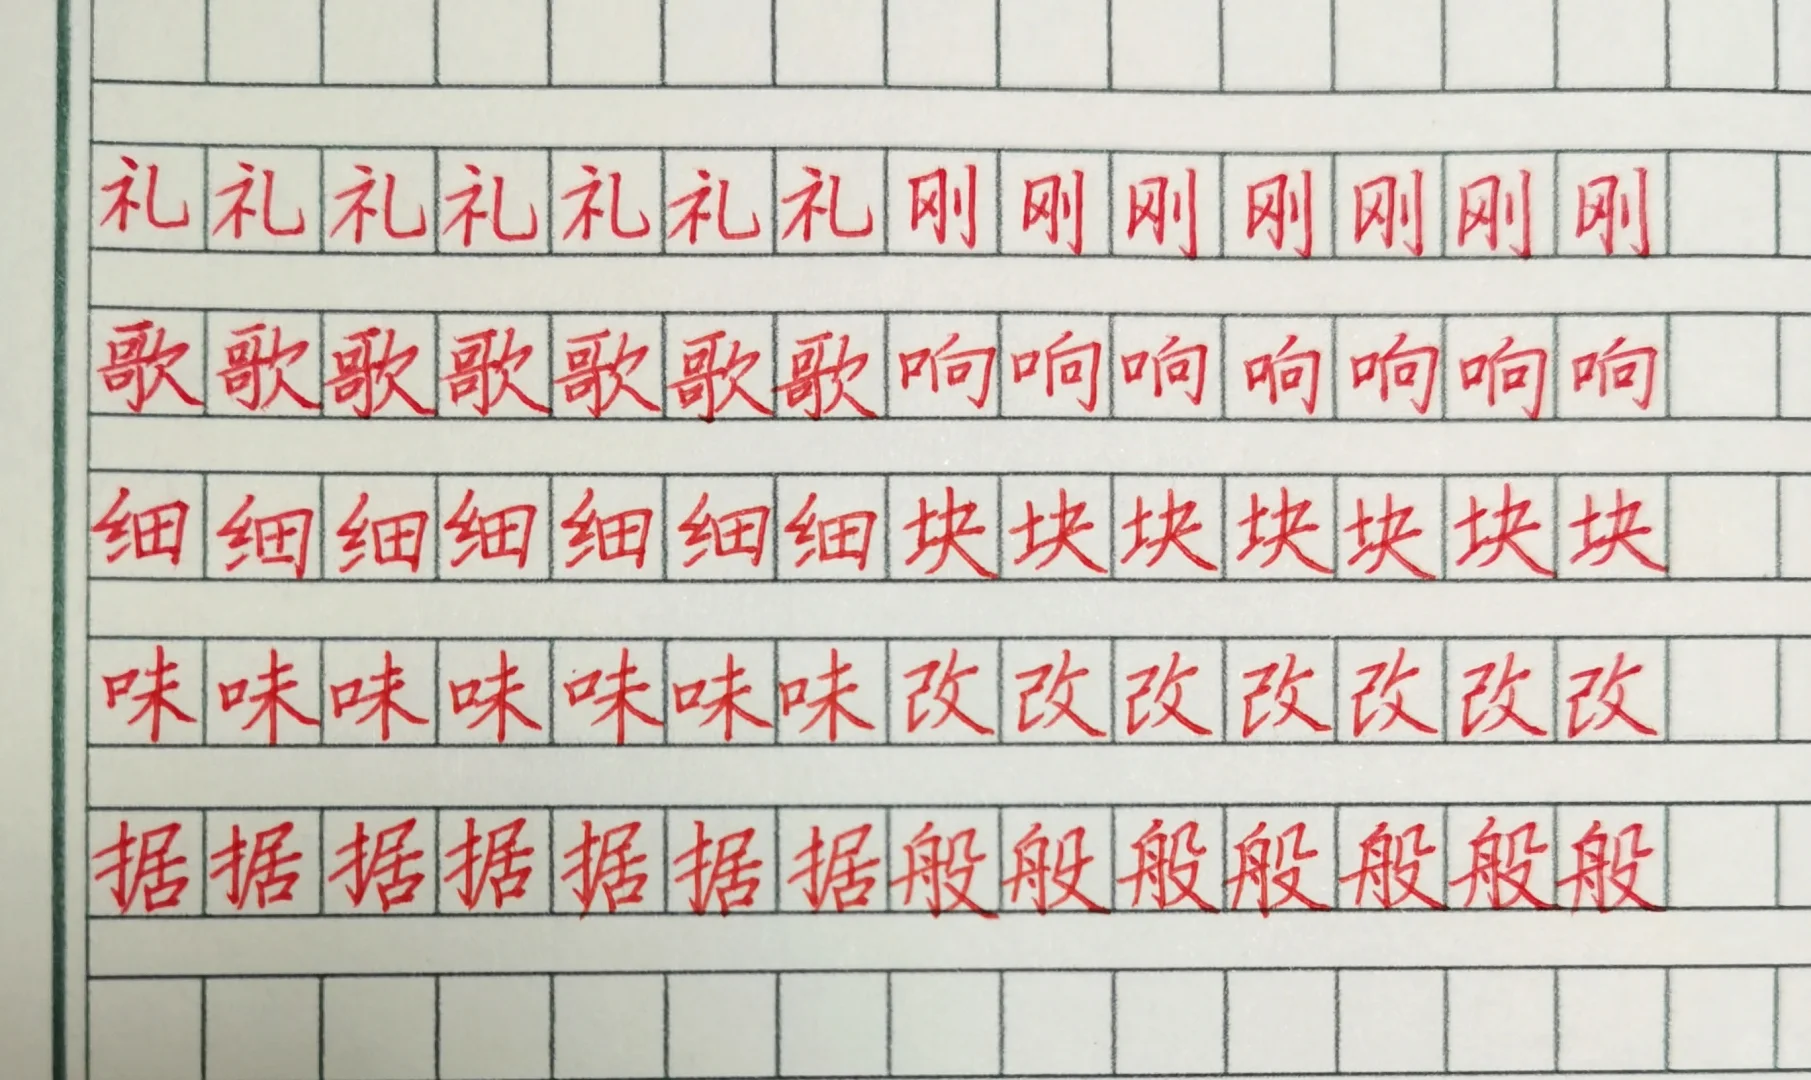 礼礼礼礼礼礼礼刚刚刚刚刚刚刚
歌歌歌歌歌歌歌响响响响响响响
细细细细细细细块块块块块块块
味味味味味味味改改改改改改改
据据据据据据据般般般般般般般